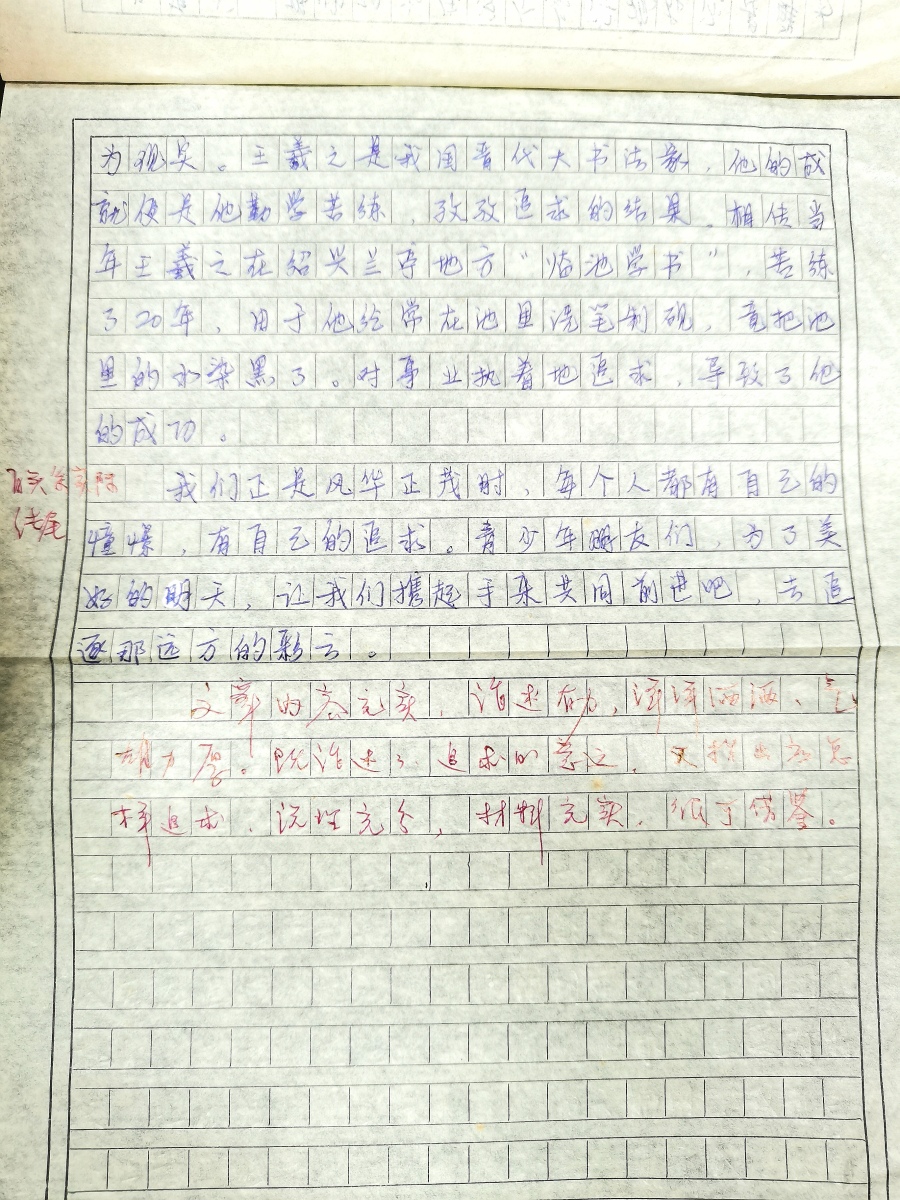 为现实。王羲之是我国晋代大书法家，他的成
就便是他勤学苦练，孜孜追求的结果，相传当
年王羲之在绍兴兰亭地方“临池学书”，苦练
了20年，由于他经常在池里洗笔制砚，竟把池
里的水染黑了。对事业执着地追求，导致了他
的成功。
我们正是风华正茂时，每个人都有自己的
憧憬，有自己的追求。青少年朋友们，为了美
好的明天，让我们携起手来共同前进吧，去追
逐那远方的彩云。
结尾
文章内容充实，论述有力，洋洋洒洒、气
雄力厚。既论述了追求的意义，又指出
样追求，说理充分，材料充实，借鉴。